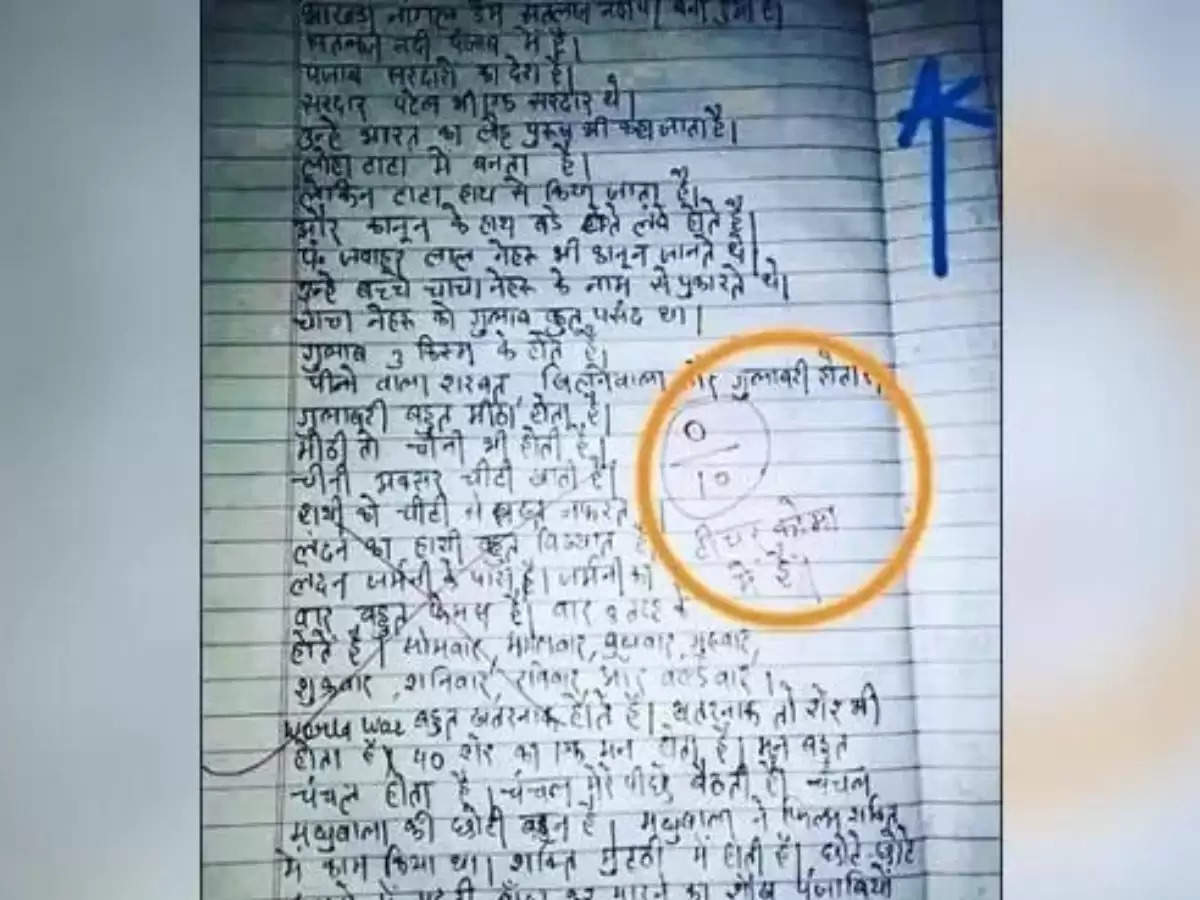 भाखडा नांगल डैम सतलज नदी पर बना हुआ है।
सतलज नदी पंजाब में है।
पंजाब सरदारो का देश है।
सरदार पटेल भी एक सरदार थे।
उन्हे भारत का लोह पुरुष भी कहा जाता है।
लोहा टाटा में बनता है।
लेकिन टाटा हाथ से किया जाता है।
और कानून के हाथ बडे होते लंबे होते है।
पं. जवाहर लाल नेहरू भी कानून जानते थे।
उन्हे बच्चे चाचा नेहरू के नाम से पुकारते थे।
चाचा नेहरू को गुलाब बहुत पसंद था।
गुलाब 3 किस्म के होते है।
पीने वाला शरबत, और गुलाबरी होता
गुलाबरी बहुत मीठा होता है।
मीठी तो चीनी भी होती है।
चीनी अक्सर चीटी खाती है।
हाथी को चीटी से बहुत नफरत
लंदन का हाथी बहुत विख्यात है।
लंदन जर्मनी के पास है। जर्मनी का
वार बहुत फेमस है। वार 8 तरह के
होते है। सोमवार, मंगलवार, बुधवार, गुरुवार,
शुक्रवार, शनिवार, रविवार और वर्ल्डवार।
World War बहुत खतरनाक होते है। खतरनाक तो शेर भी
होता है। 40 शेर का एक मन होता है। मन बहुत
चंचल होता है। चंचल मेरे पीछे बैठती है। चंचल
मधुबाला की छोटी बहन है। मधुबाला ने फिल्म शक्ति
मे काम किया था। शक्ति मुटठी में होती है। छोटे-छोटे
मारने का शौख पंजाबियो
0
10
टीचर कोमा
में है।